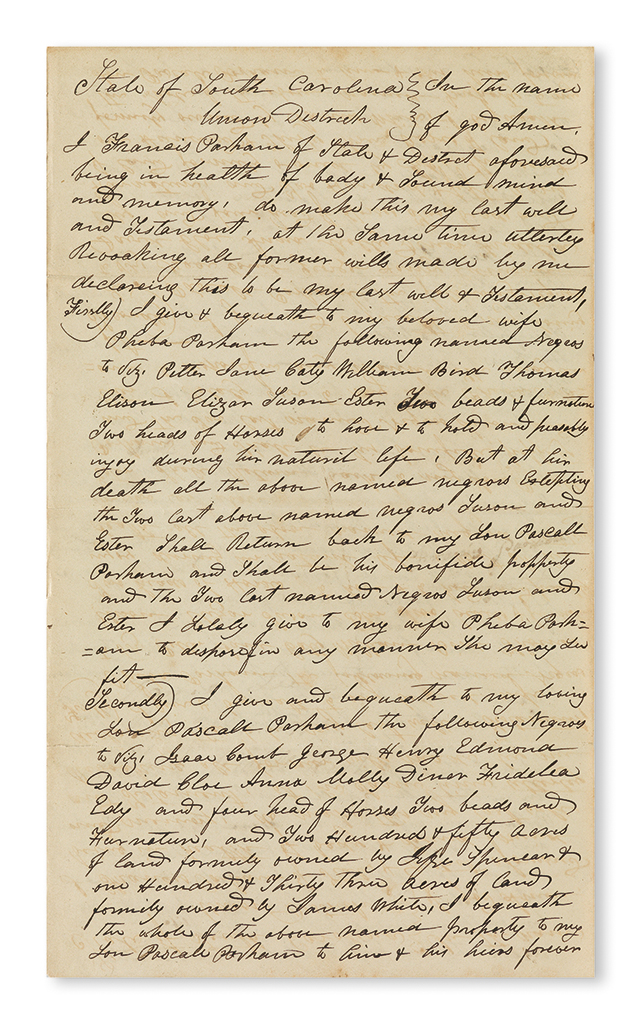 State of South Carolina } In the name
Union District } of god Amen.
I Francis Parham of State & District aforesaid
being in health of body & Sound mind
and memory, do make this my last will
and Testament, at the Same time utterley
Revoaking all former wills made by me
declareing this to be my last will & Testament,
Firstly) I give & bequeath to my beloved wife
Pheba Parham the following named Negros
to Viz. Petter Jane Caty William Bird Thomas
Elison Elizar Suson Ester Two beads & furnature
Two heads of Horses to have & to hold and peasably
injoy during hir naturil life, But at hir
death all the above named negros Exlepting
the Two last above named negros Suson and
Ester Shall Return back to my Son Pascall
Parham and Shall be his bonifide propperty
and the Two last named Negros Suson and
Ester I Lolaly give to my wife Pheba Parh=
=am to dispose in any manner She may See
fit —
Secondly) I give and bequeath to my loving
Son Pascall Parham the following Negros
to Viz, Isaac Comb George Henry Edmond
David Cloe Anna Molly Diner Fridelea
Edy and four head of Horses Two beads and
Furnature, and Two Hundred & fifty Acres
of land formily owned by Spencar &
one Hundred & Thirty three acres of Land
formily owned by James White, I bequeath
the whole of the above named property to my
Son Pascall Parham to him & his heirs forever